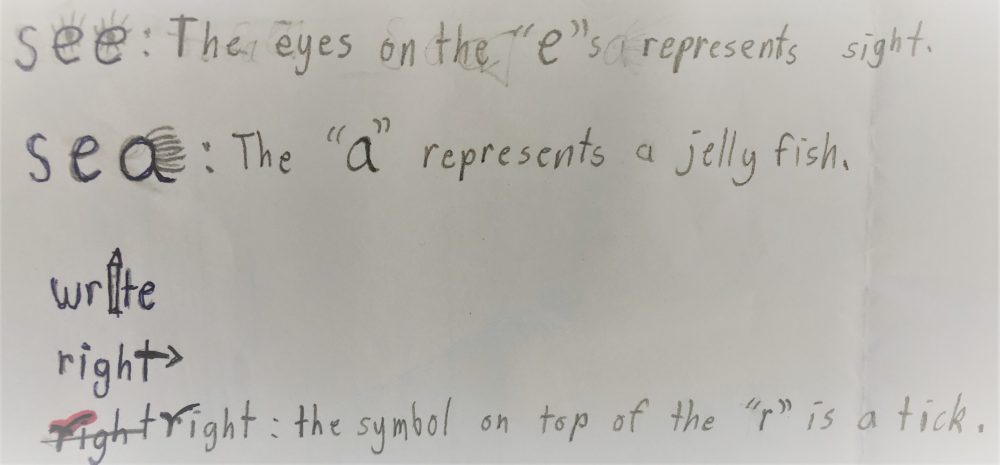 see: The eyes on the "e"s represents sight.
sea: The "a" represents a jelly fish.
write
right
right right: the symbol on top of the "r" is a tick.